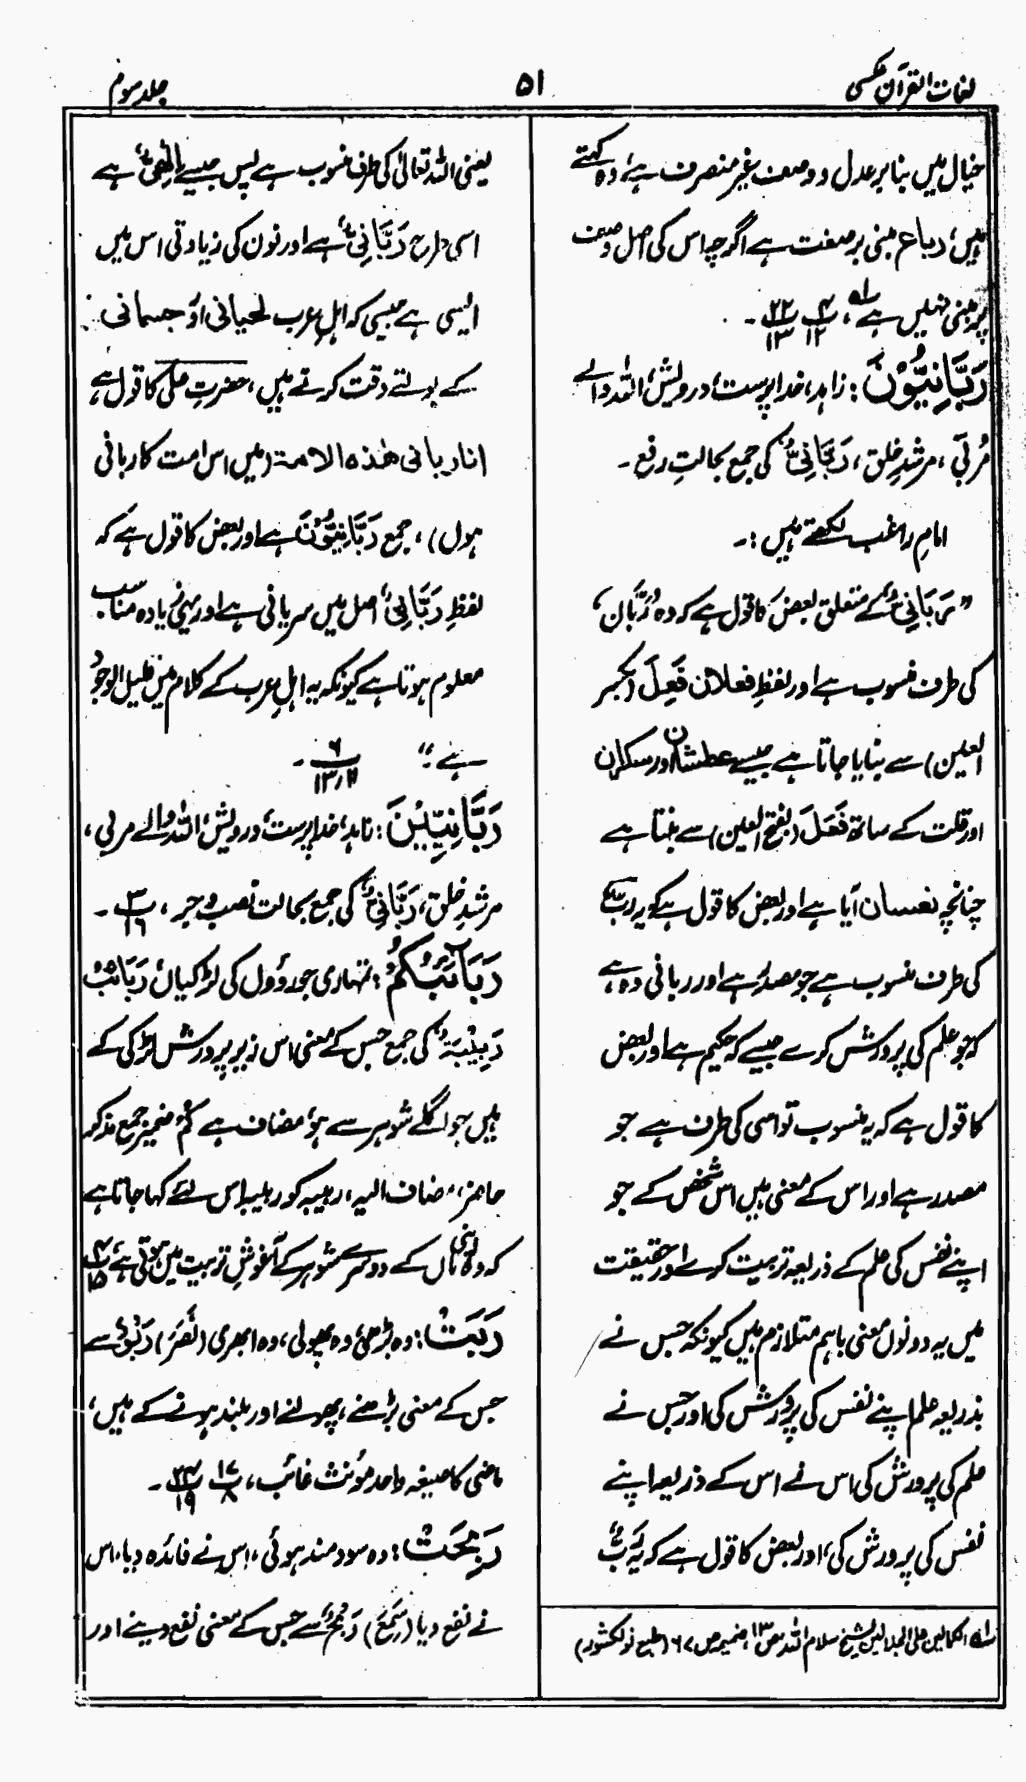 لغات القرآن عکسی
۵۱
جلد سوم
خیال میں بنا بر عدل و وصف غیر منصرف ہے، وہ کہتے
ہیں، رباع مبنی بر صفت ہے اگرچہ اس کی اصل وصف
پر مبنی نہیں ہے ۴/۱۲ ۲۲/۱۳۔
رَبَّانِیُّوْنَ: زاہد، خدا پرست، درویش، اللہ والے
مُربّی، مرشدِ خلق، رَبَّانِیٌّ کی جمع بحالتِ رفع۔
امام راغب لکھتے ہیں:۔
”رَبَّانِیٌّ کے متعلق بعض کا قول ہے کہ وہ رَبَّان،
کی طرف منسوب ہے اور لفظِ فعلان فَعِلَ (بکسر
العین) سے بنایا جاتا ہے جیسے عطشان اور سکران
اور قلت کے ساتھ فَعَلَ (بفتح العین) سے بنتا ہے
چنانچہ نعسان آیا ہے اور بعض کا قول ہے کہ یہ ربّ
کی طرف منسوب ہے جو مصدر ہے اور ربانی وہ ہے
کہ جو علم کی پرورش کرے جیسے کہ حکیم ہے اور بعض
کا قول ہے کہ یہ منسوب تو اسی کی طرف ہے جو
مصدر ہے اور اس کے معنی ہیں اس شخص کے جو
اپنے نفس کی علم کے ذریعہ تربیت کرے اور حقیقت
میں یہ دونوں معنی باہم متلازم ہیں کیونکہ جس نے
بذریعہ علم اپنے نفس کی پرورش کی اور جس نے
علم کی پرورش کی اس نے اس کے ذریعہ اپنے
نفس کی پرورش کی، اور بعض کا قول ہے کہ یہ رَبّ
لہ الکمالین علی الجلالین لشیخ سلام اللہ ص ۱۳ ضمیمہ ص ۶۷ (طبع نولکشور)
یعنی اللہ تعالیٰ کی طرف منسوب ہے پس جیسے اِلٰھِیٌّ ہے
اسی طرح رَبَّانِیٌّ ہے اور نون کی زیادتی اس میں
ایسی ہے جیسی کہ اہلِ عرب لحیانی اور جسمانی
کے بولتے وقت کرتے ہیں، حضرتِ علی کا قول ہے
انا ربانی ھٰذہ الامۃ (میں اس امت کا ربانی
ہوں)، جمع رَبَّانِیُّوْنَ ہے اور بعض کا قول ہے کہ
لفظِ رَبَّانِیٌّ اصل میں سریانی ہے اور یہی زیادہ مناسب
معلوم ہوتا ہے کیونکہ یہ اہلِ عرب کے کلام میں قلیل الوجود
ہے“ ۶/۱۳،۱۱۔
رَبَّانِیِّیْنَ: زاہد، خدا پرست، درویش، اللہ والے مربی،
مرشدِ خلق، رَبَّانِیٌّ کی جمع بحالت نصب و جر، ۳/۱۶۔
رَبَآئِبُکُمْ: تمہاری جوروؤں کی لڑکیاں رَبَائِبْ
رَبِیْبَۃٌ کی جمع جس کے معنی اس زیر پرورش لڑکی کے
ہیں جو اگلے شوہر سے ہو، مضاف ہے کُمْ ضمیر جمع مذکر
حاضر، مضاف الیہ، ربیبہ کو ربیبہ اس لئے کہا جاتا ہے
کہ وہ اپنی ماں کے دوسرے شوہر کے آغوش تربیت میں ہوتی ہے ۴/۱۵
رَبَتْ: وہ بڑھی، وہ پھولی، وہ ابھری (نَصَرَ) رَبْوٌ سے
جس کے معنی بڑھنے، پھولنے اور بلند ہونے کے ہیں،
ماضی کا صیغہ واحد مؤنث غائب، ۱۷/۸ ۲۴/۱۹۔
رَبِحَتْ: وہ سود مند ہوئی، اس نے فائدہ دیا، اس
نے نفع دیا (سَمِعَ) رِبْحٌ سے جس کے معنی نفع دینے اور